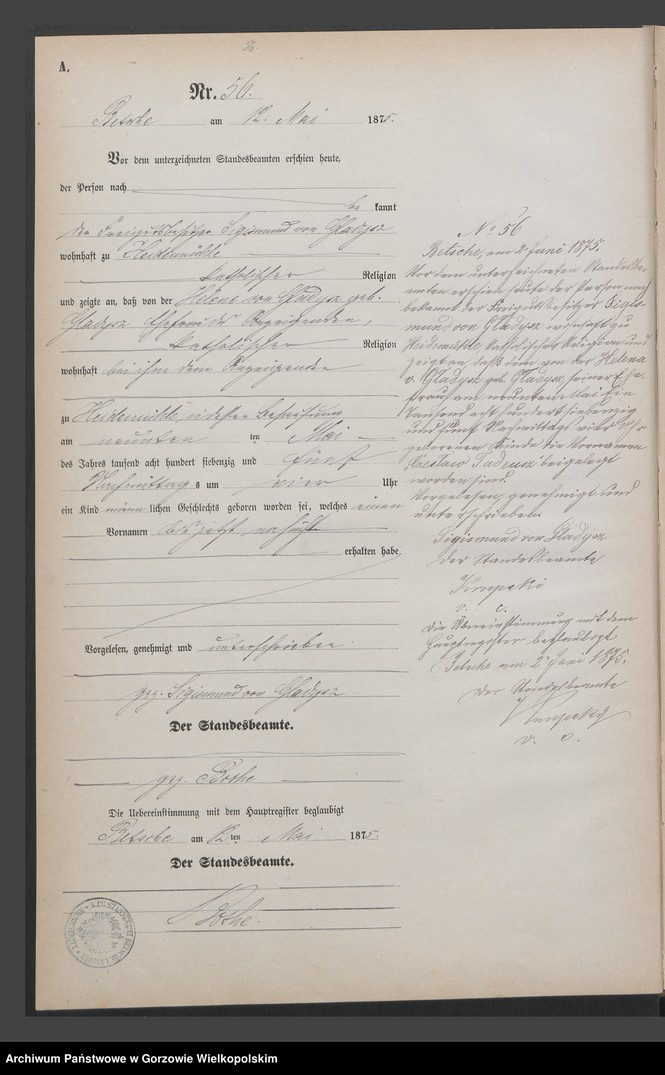 56.
A.
Nr. 56.
Betsche am 12. Mai 1875.
Vor dem unterzeichneten Standesbeamten erschien heute,
der Person nach
be kannt
der Freigutsbesitzer Sigismund von Gladysz
wohnhaft zu Heidemühle
katholischer Religion
und zeigte an, daß von der Helene von Gladysz geb.
Gladysz Ehefrau des Anzeigenden,
katholischer Religion
wohnhaft bei ihm dem Anzeigenden
zu Heidemühle in dessen Behausung
am neunten ten Mai
des Jahres tausend acht hundert siebenzig und fünf
Nachmittags um vier Uhr
ein Kind männlichen Geschlechts geboren worden sei, welches einen
Vornamen bis jetzt nicht
erhalten habe
Vorgelesen, genehmigt und unterschrieben.
gez. Sigismund von Gladysz
Der Standesbeamte.
gez. Bothe
Die Uebereinstimmung mit dem Hauptregister beglaubigt
Betsche am 12 ten Mai 1875.
Der Standesbeamte.
Bothe.
No 56
Betsche, am 2 Juni 1875.
Vor dem unterzeichneten Standesbe-
amten erschien heute der Person nach
bekannt der Freigutsbesitzer Sigis-
mund von Gladysz wohnhaft zu
Heidemühle katholischer Religion und
zeigte an, daß dem von der Helena
v. Gladysz geb. Gladysz, seiner Ehe-
frau, am neunten Mai Ein
Tausend acht hundert siebenzig
und fünf Nachmittags vier Uhr
geborenen Kinde die Vornamen
Tadeusz beigelegt
worden sind.
Vorgelesen, genehmigt und
unterschrieben.
Sigismund von Gladysz
Der Standesbeamte
Krupski
Die Übereinstimmung mit dem
Hauptregister beglaubigt
Betsche am 2 Juni 1875.
Der Standesbeamte
Archiwum Państwowe w Gorzowie Wielkopolskim